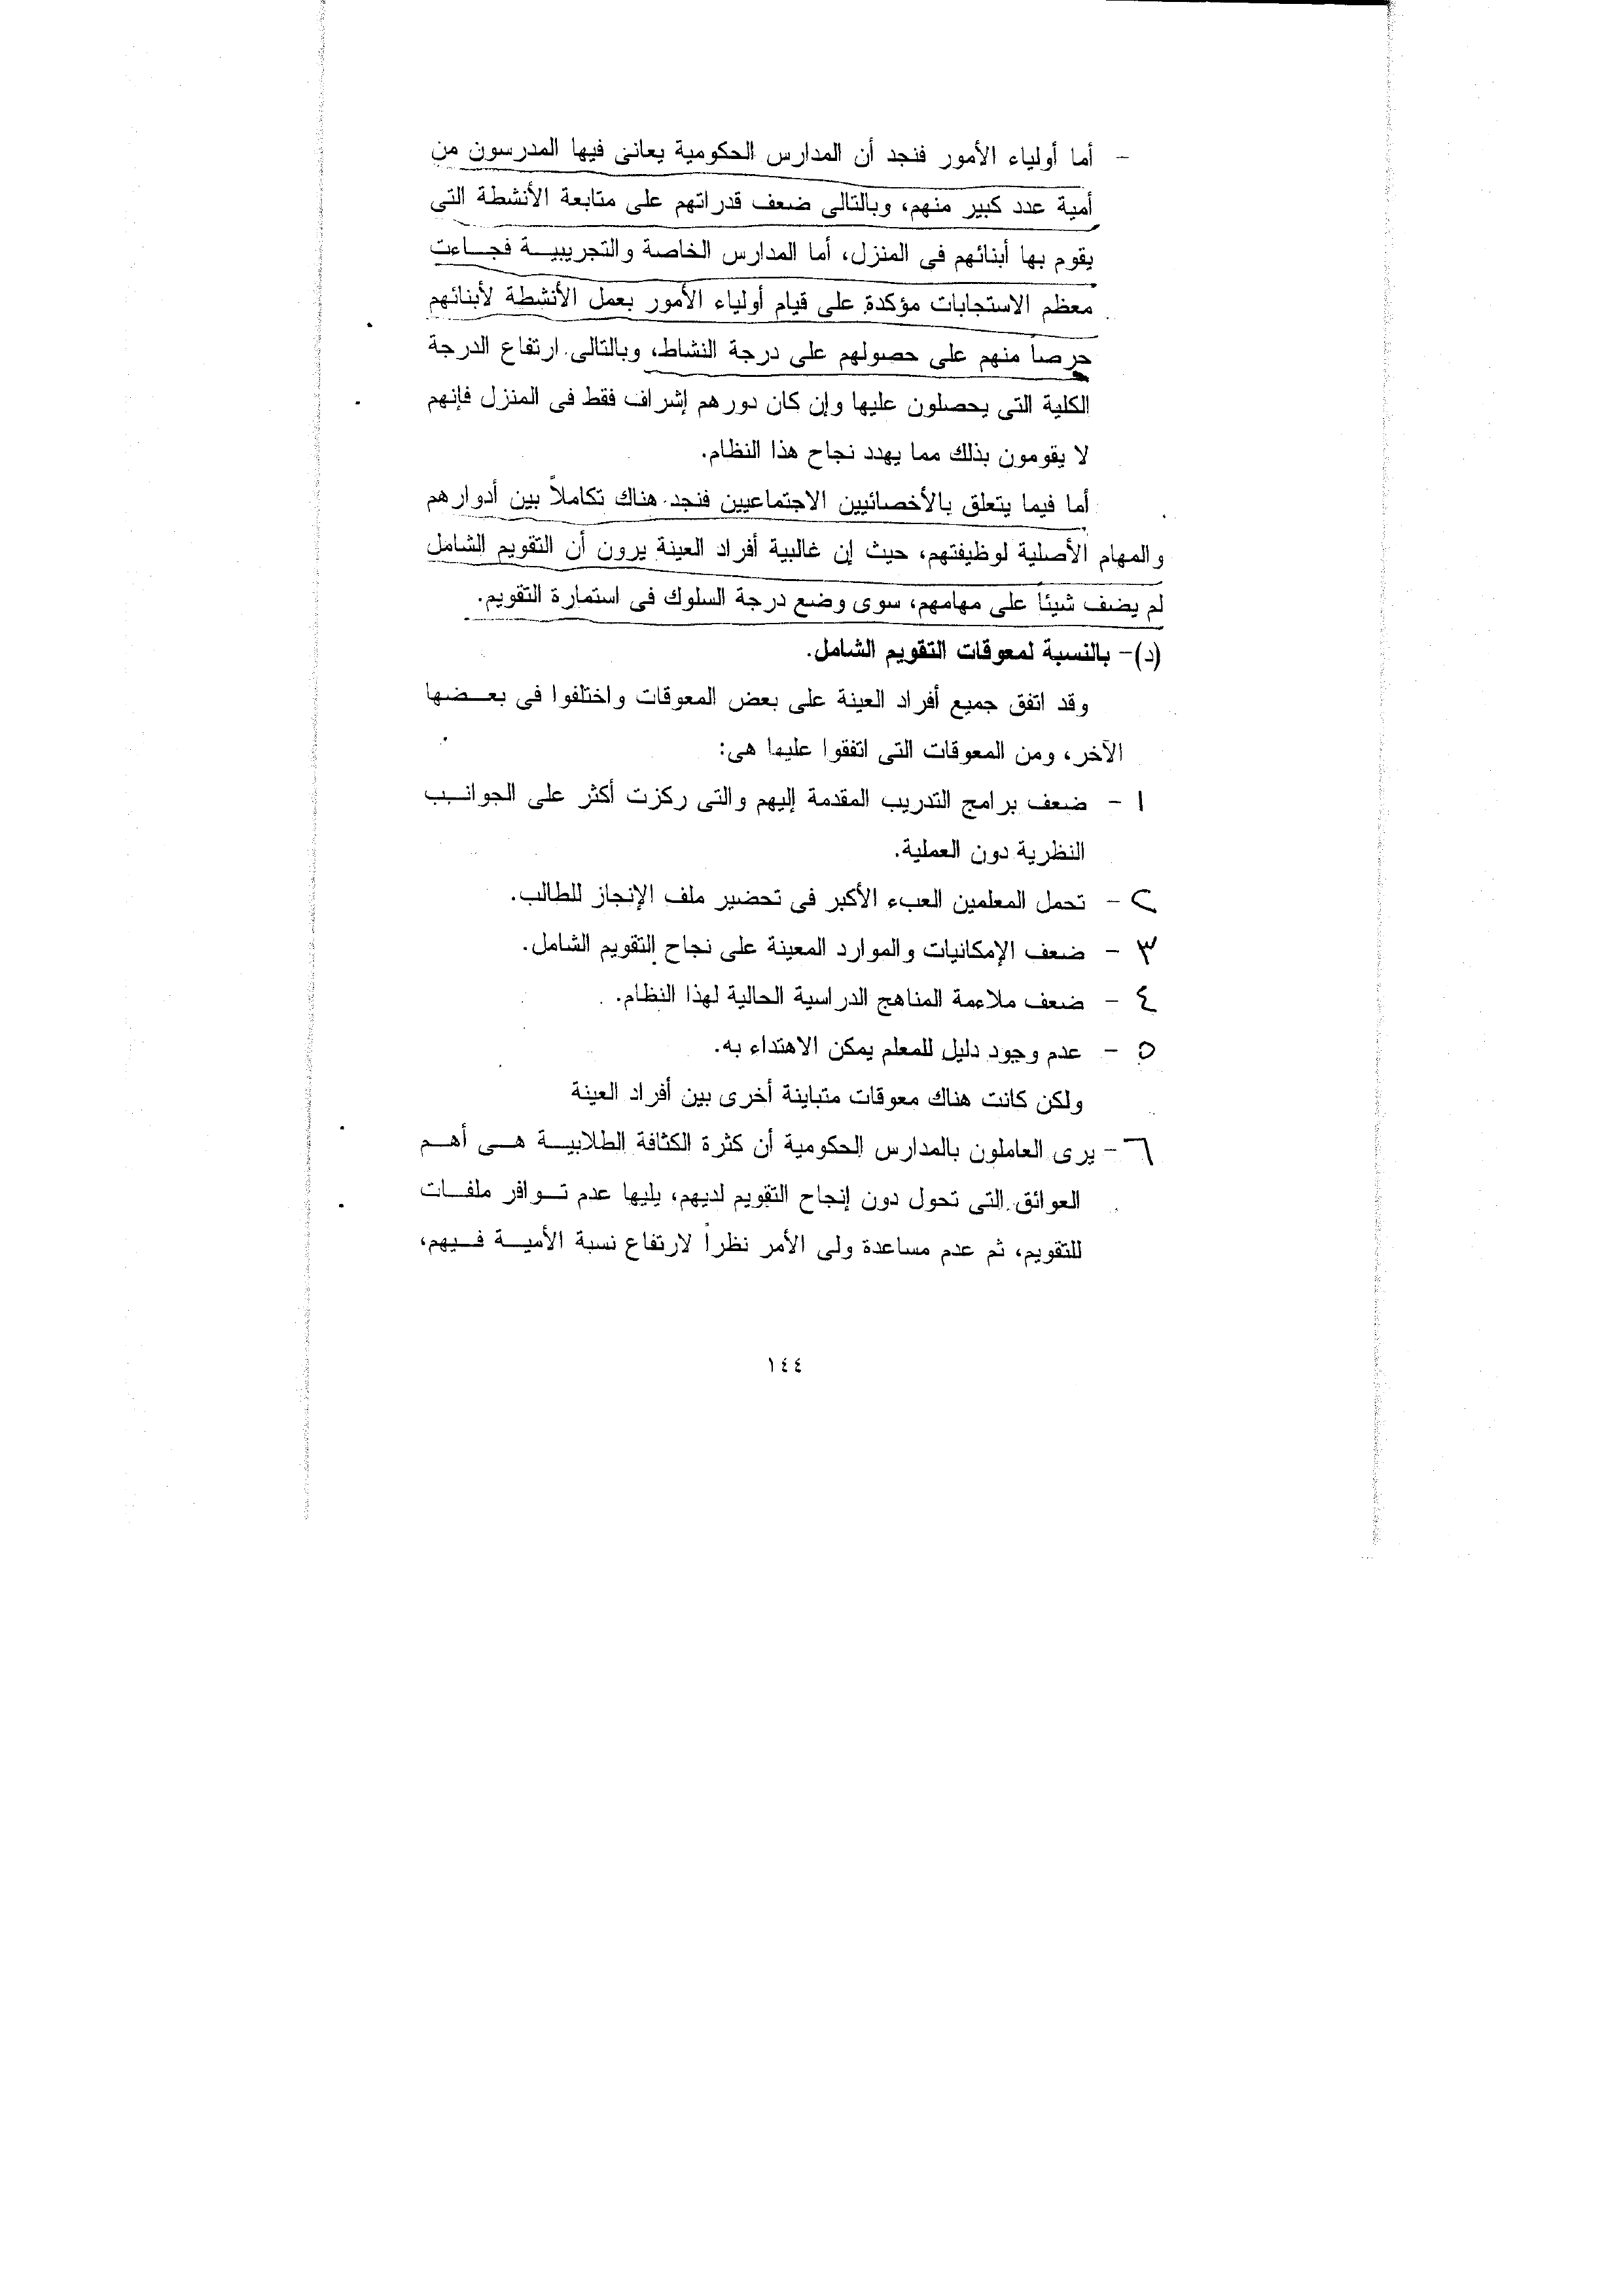 - أما أولياء الأمور فنجد أن المدارس الحكومية يعانى فيها المدرسون من
أمية عدد كبير منهم، وبالتالى ضعف قدراتهم على متابعة الأنشطة التى
يقوم بها أبنائهم فى المنزل، أما المدارس الخاصة والتجريبيــة فجــاءت
معظم الاستجابات مؤكدة على قيام أولياء الأمور بعمل الأنشطة لأبنائهم
حرصاً منهم على حصولهم على درجة النشاط، وبالتالى ارتفاع الدرجة
الكلية التى يحصلون عليها وإن كان دورهم إشراف فقط فى المنزل فإنهم
لا يقومون بذلك مما يهدد نجاح هذا النظام.
أما فيما يتعلق بالأخصائيين الاجتماعيين فنجد هناك تكاملاً بين أدوارهم
والمهام الأصلية لوظيفتهم، حيث إن غالبية أفراد العينة يرون أن التقويم الشامل
لم يضف شيئاً على مهامهم، سوى وضع درجة السلوك فى استمارة التقويم.
(د)- بالنسبة لمعوقات التقويم الشامل.
وقد اتفق جميع أفراد العينة على بعض المعوقات واختلفوا فى بعــضها
الآخر، ومن المعوقات التى اتفقوا عليها هى:
١ - ضعف برامج التدريب المقدمة إليهم والتى ركزت أكثر على الجوانــب
النظرية دون العملية.
٢ - تحمل المعلمين العبء الأكبر فى تحضير ملف الإنجاز للطالب.
٣ - ضعف الإمكانيات والموارد المعينة على نجاح التقويم الشامل.
٤ - ضعف ملاءمة المناهج الدراسية الحالية لهذا النظام.
٥ - عدم وجود دليل للمعلم يمكن الاهتداء به.
ولكن كانت هناك معوقات متباينة أخرى بين أفراد العينة
٦ - يرى العاملون بالمدارس الحكومية أن كثرة الكثافة الطلابيــة هــى أهــم
العوائق التى تحول دون إنجاح التقويم لديهم، يليها عدم تــوافر ملفــات
للتقويم، ثم عدم مساعدة ولى الأمر نظراً لارتفاع نسبة الأميــة فــيهم،
١٤٤